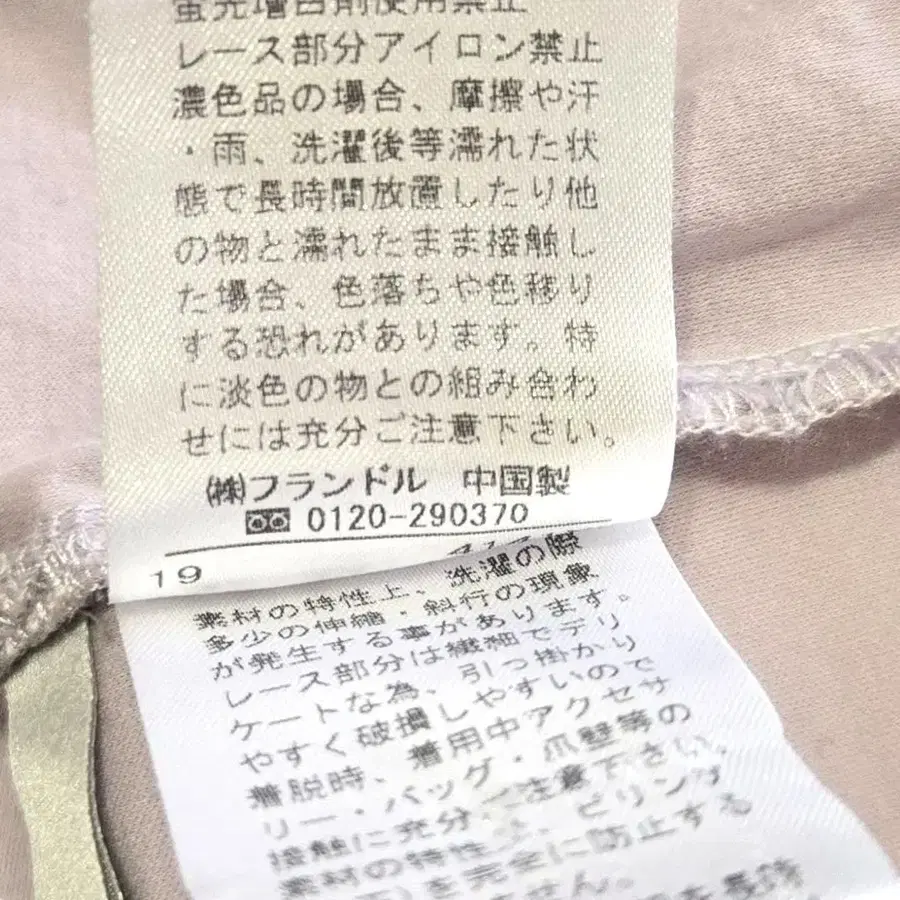 蛍光増白剤使用禁止
レース部分アイロン禁止
濃色品の場合、摩擦や汗
・雨、洗濯後等濡れた状
態で長時間放置したり他
の物と濡れたまま接触し
た場合、色落ちや色移り
する恐れがあります。特
に淡色の物との組み合わ
せには充分ご注意下さい。
㈱フランドル 中国製
0120-290370
19
素材の特性上、洗濯の際
多少の伸縮・斜行の現象
が発生する事があります。
レース部分は繊細でデリ
ケートな為、引っ掛かり
やすく破損しやすいので
着脱時、着用中アクセサ
リー・バッグ・爪、壁等の
接触に充分ご注意下さい。
素材の特性上、ピリング
を完全に防止する
ません。